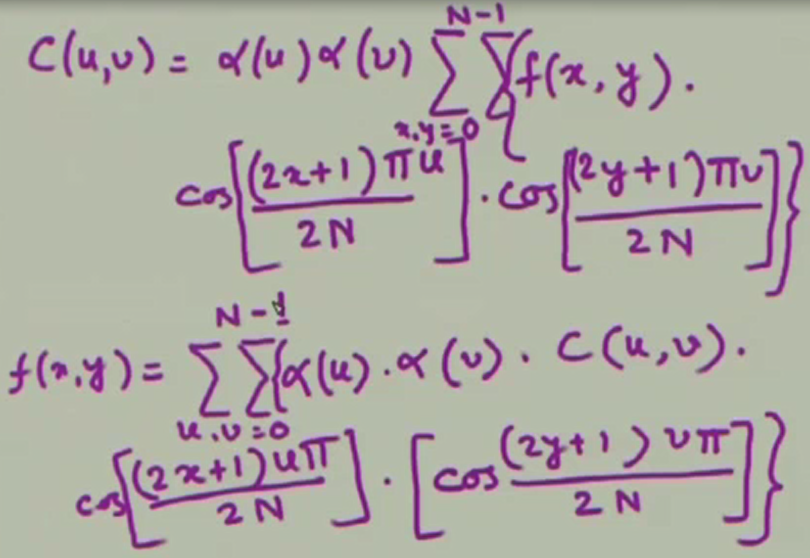 C(u,v) = α(u) α(v) N-1 ∑ ∑ x,y=0 { f(x,y) .
cos [ (2x+1) π u / 2N ] . cos [ (2y+1) π v / 2N ] }
f(x,y) = N-1 ∑ ∑ u,v=0 { α(u) . α(v) . C(u,v) .
cos [ (2x+1) u π / 2N ] . [ cos (2y+1) v π / 2N ] }